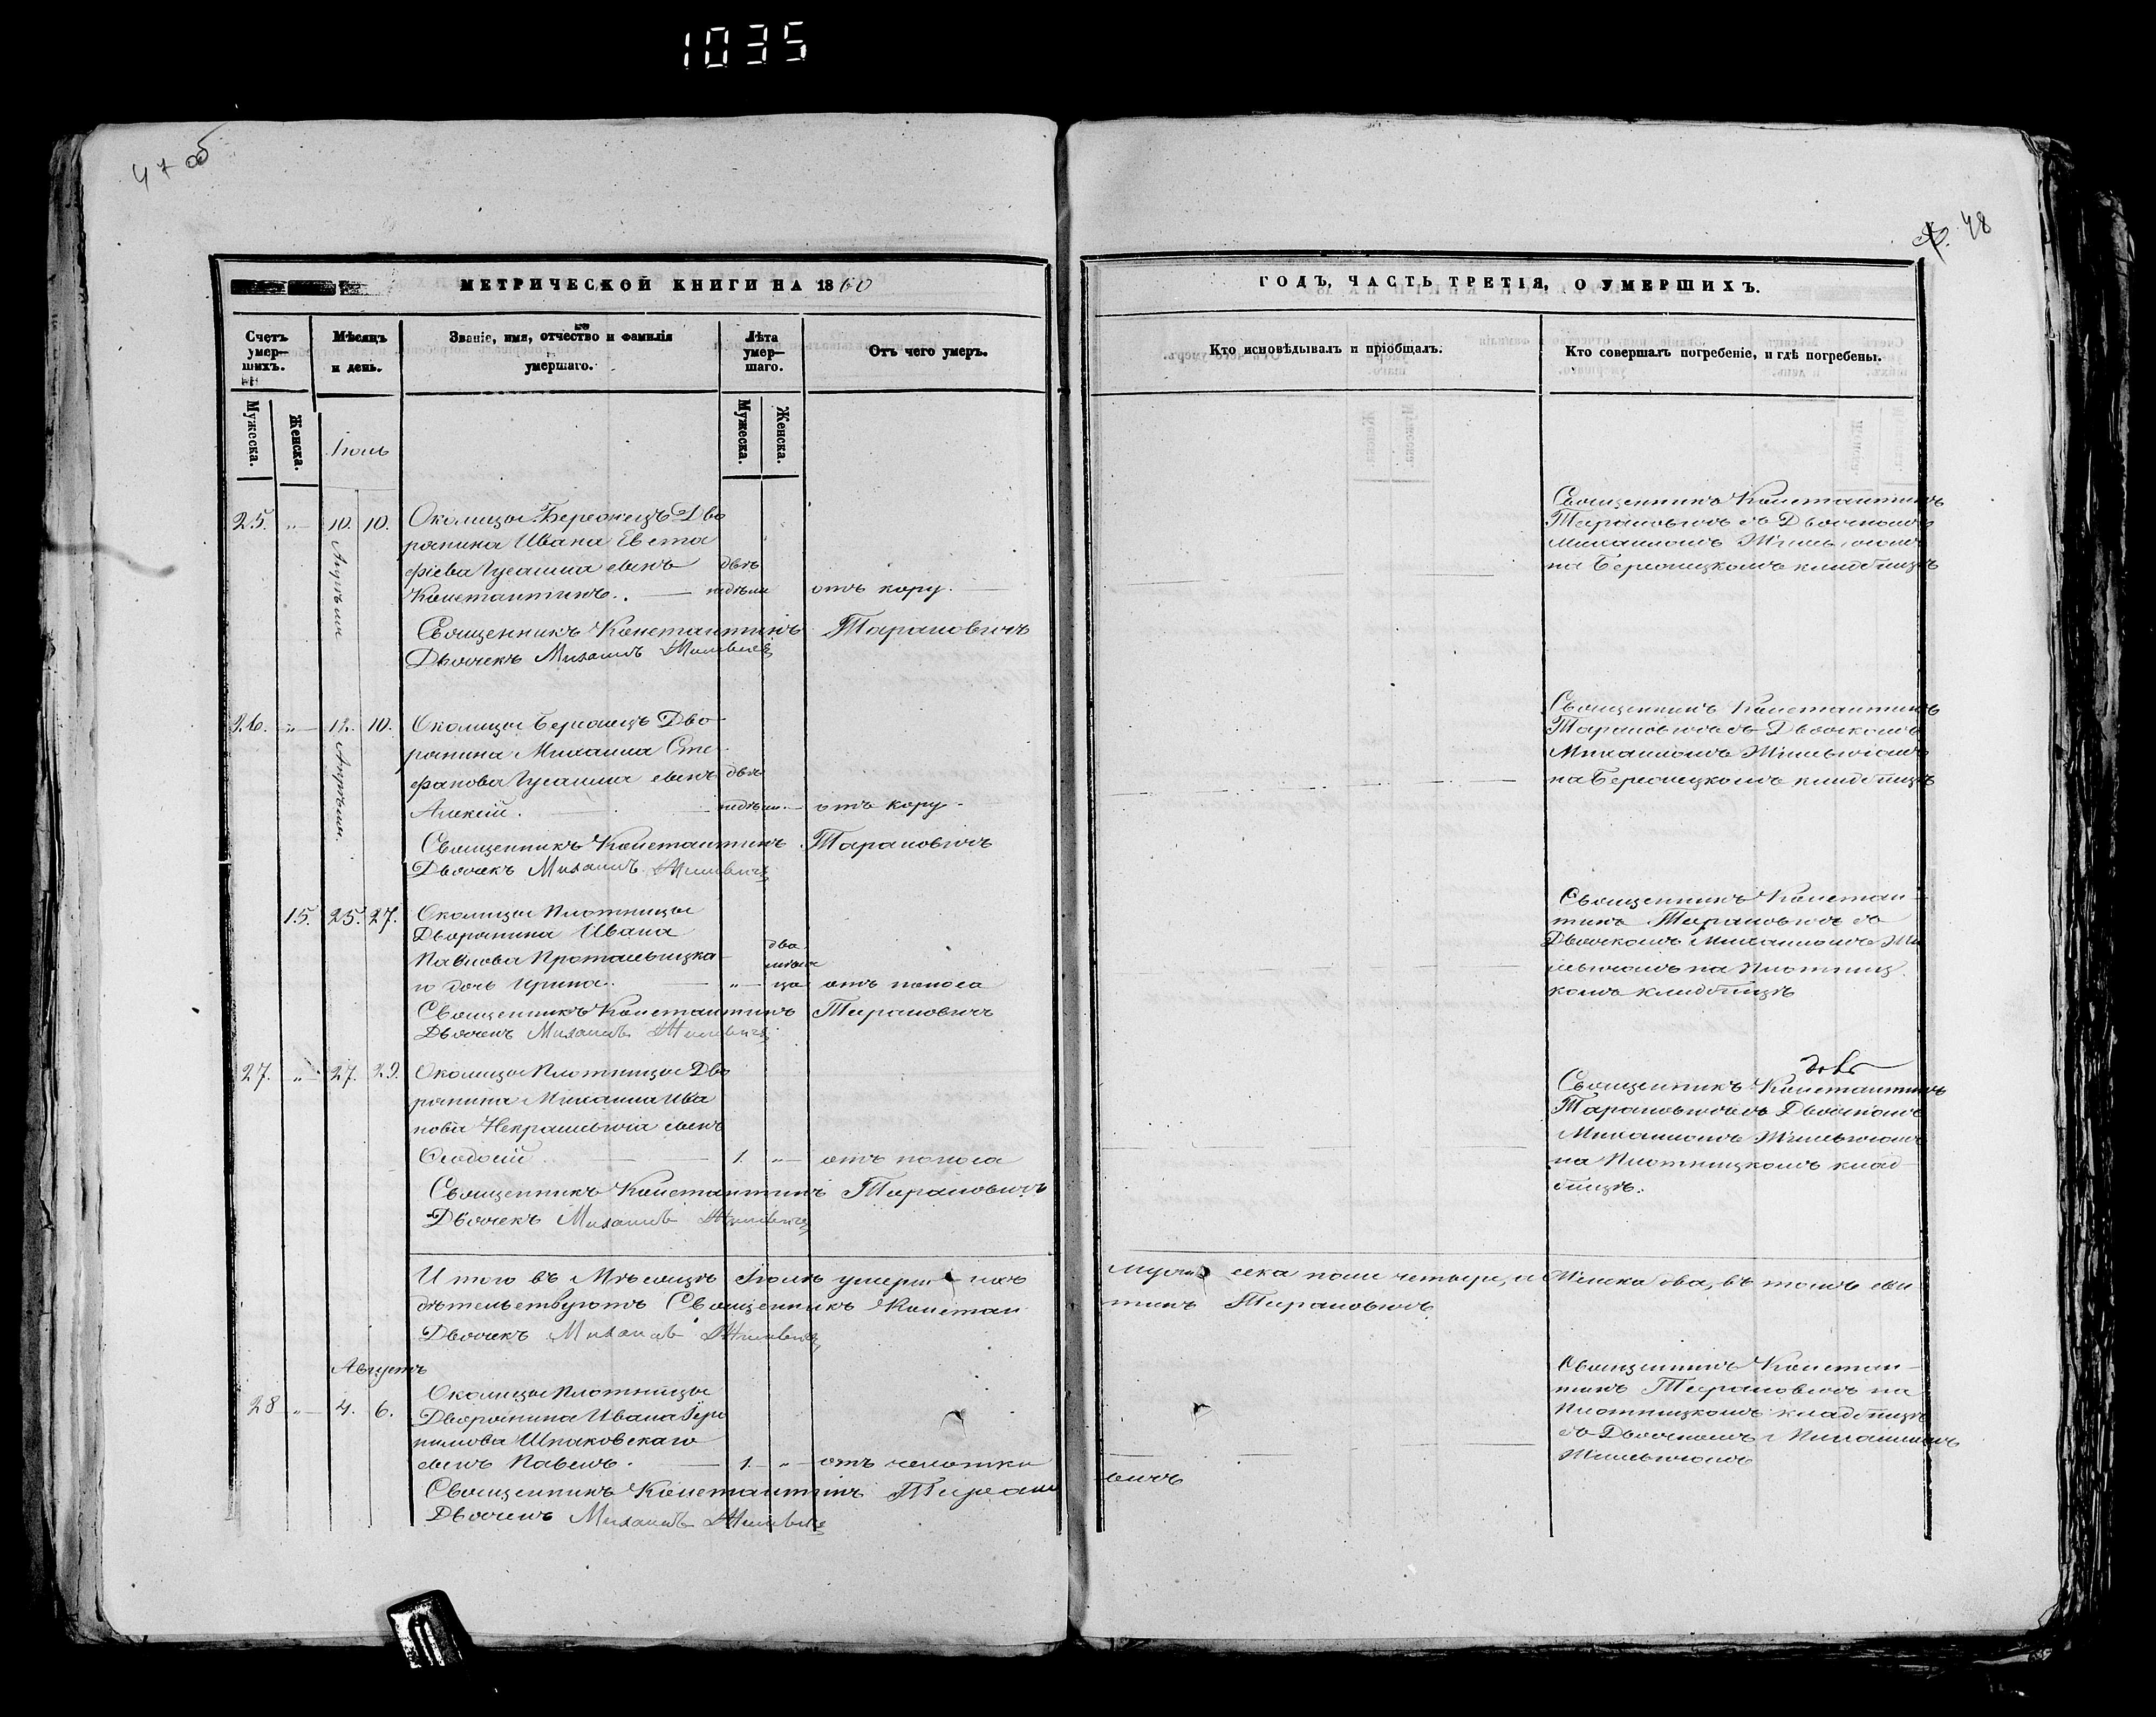 1035
47 об
48
МЕТРИЧЕСКОЙ КНИГИ НА 1860
ГОДЪ, ЧАСТЬ ТРЕТІЯ, О УМЕРШИХЪ.
Счетъ умер—шихъ.
Мѣсяцъ и день.
Званіе, имя, отчество и фамилія умершаго.
Лѣта умер—шаго.
Отъ чего умеръ.
Кто исповѣдывалъ и пріобщалъ.
Кто совершалъ погребеніе, и гдѣ погребены.
Мужеска.
Женска.
Мужеска.
Женска.
Іюль
25. „ 10. 10. Околицы Бережецъ Дво
рянина Ивана Евста
фіева сынъ двѣ
Константинъ. недѣли отъ кору.
Священникъ Константинъ Тарановичъ
Дьячекъ Михаилъ Жилевичъ
Священникъ Константинъ
Тарановичъ съ Дьячкомъ
Михаиломъ
на кладбищѣ
26. „ 12. 10. Околицы Дво
рянина Михаила Сте
фанова сынъ двѣ
Алексій. недѣли. отъ кору.
Священникъ Константинъ Тарановичъ
Дьячекъ Михаилъ Жилевичъ
Священникъ Константинъ
Тарановичъ съ Дьячкомъ
Михаиломъ Жилевичомъ
на кладбищѣ
15. 25. 27. Околицы Плотницы
Дворянина Ивана
Павлова два
го дочь Ирина. „ отъ поноса
Священникъ Константинъ Тарановичъ
Дьячекъ Михаилъ Жилевичъ
Священникъ Констан
тинъ Тарановичъ съ
Дьячкомъ Михаиломъ Жи
левичомъ на Плотниц
комъ кладбищѣ
27. „ 27. 29. Околицы Плотницы Дво
рянина Михаила Ива
нова Некрашевича сынъ
Ѳеодосій 1. „ отъ поноса
Священникъ Константинъ Тарановичъ
Дьячекъ Михаилъ Жилевичъ
Священникъ Константинъ
Тарановичъ съ Дьячкомъ
Михаиломъ Жилевичомъ
на Плотницкомъ клад
бищѣ.
Итого въ Мѣсяцѣ Іюлѣ умерш ихъ
муж еска пола четверо, а Женска два, въ томъ сви
дѣтельствуютъ Священникъ Констан
тинъ Тарановичъ
Дьячекъ Михаилъ Жилевичъ
Августъ
28 „ 4. 6. Околицы Плотницы
Дворянина Ивана
Шпаковскаго
сынъ Павелъ. 1. „ отъ чахотки
Священникъ Константинъ Таран
овичъ
Дьячекъ Михаилъ Жилевичъ
Священникъ Констан
тинъ Тарановичъ на
Плотницкомъ кладбищѣ
съ Дьячкомъ Михаиломъ
Жилевичомъ